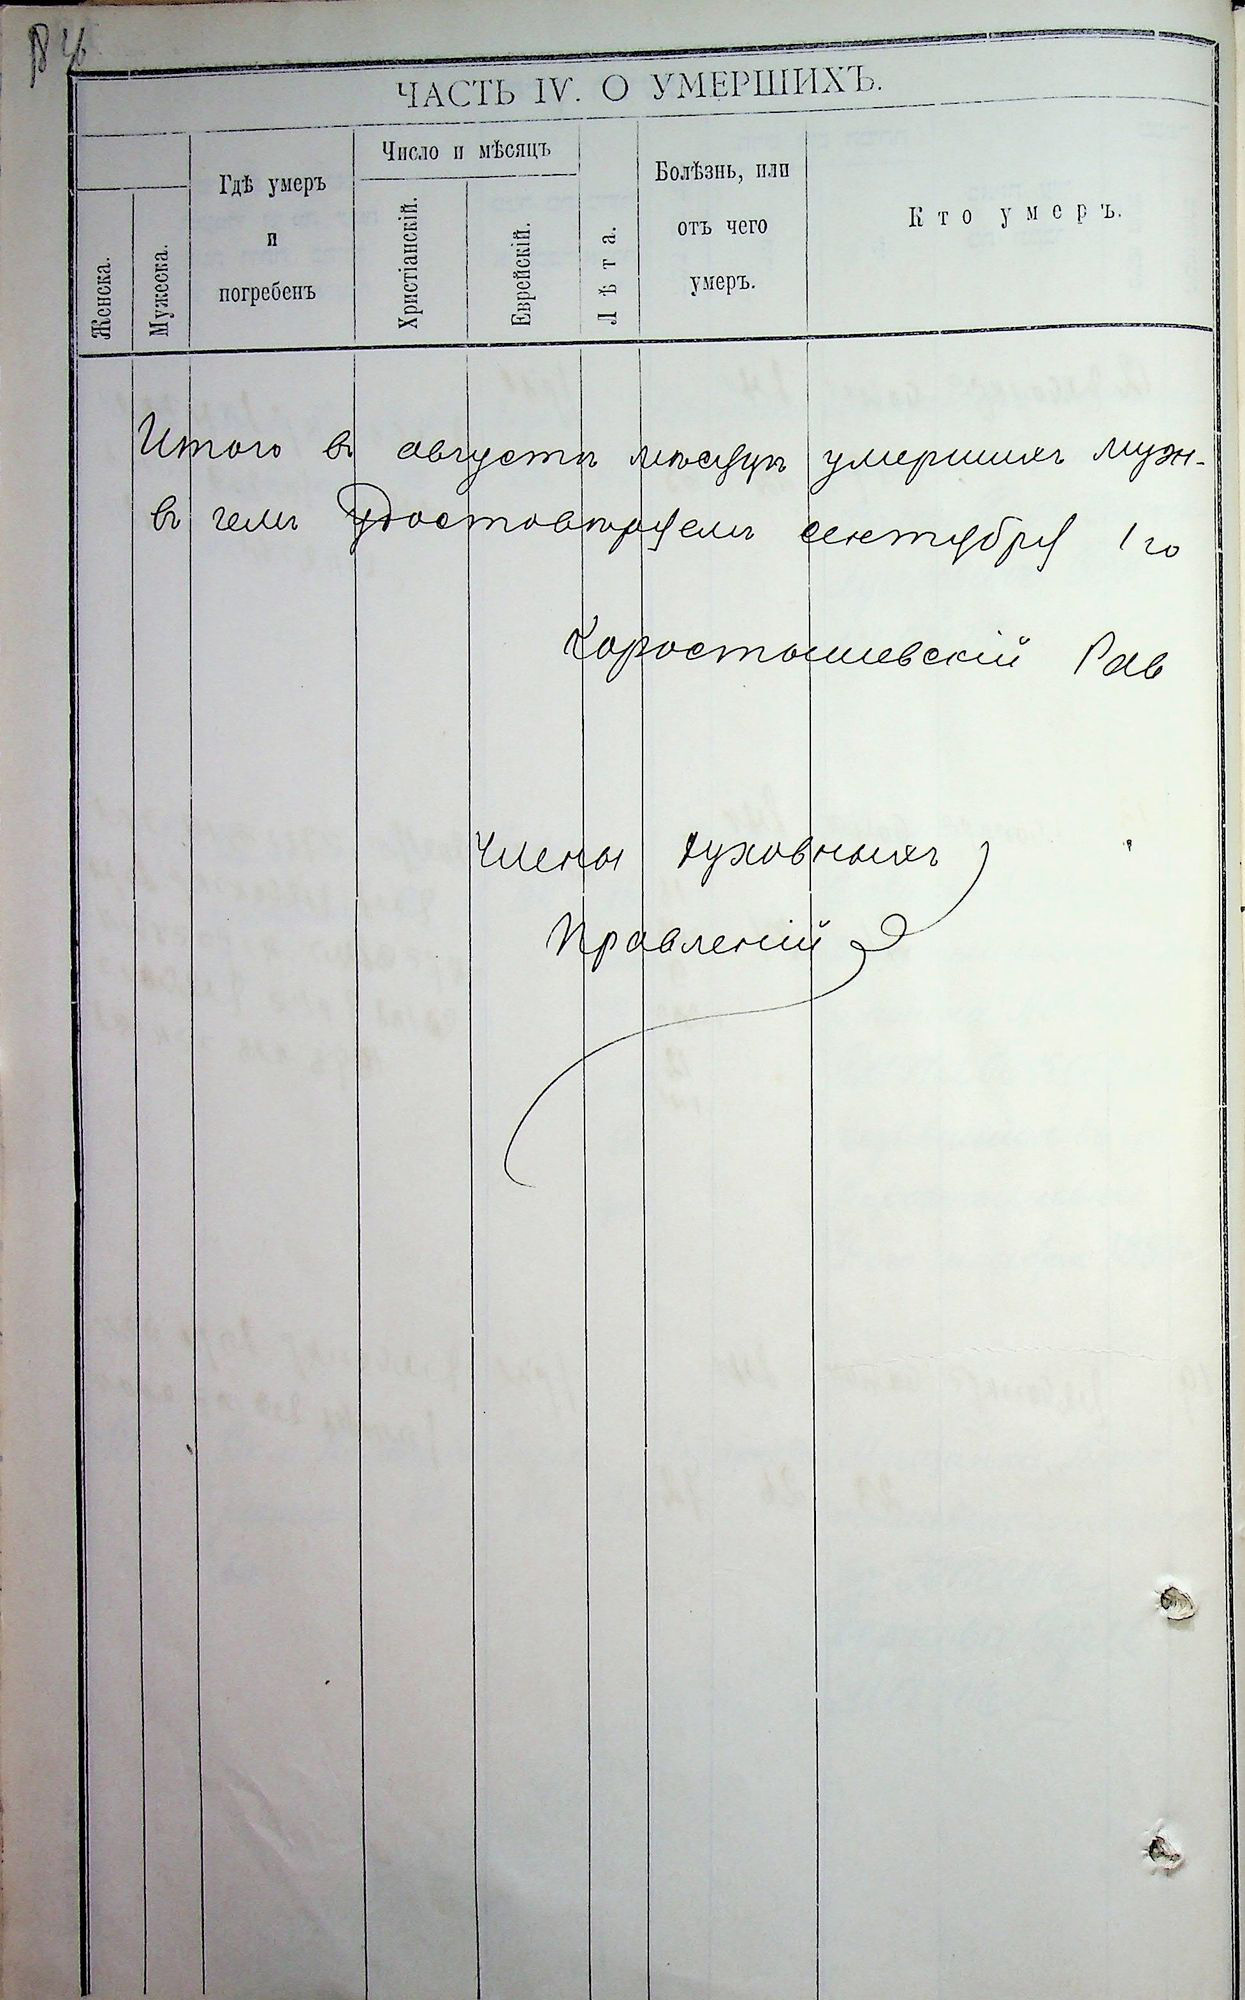 ЧАСТЬ IV. О УМЕРШИХЪ.
Женска.
Мужеска.
Гдѣ умеръ
и
погребенъ
Число и мѣсяцъ
Христіанскій.
Еврейскій.
Лѣта.
Болѣзнь, или
отъ чего
умеръ.
Кто умеръ.
Итого въ августъ мѣсяцъ умершихъ муж-
въ чемъ удостовѣряемъ сентября 1го
Коростышевскій Рав
Члены духовныхъ
Правленій